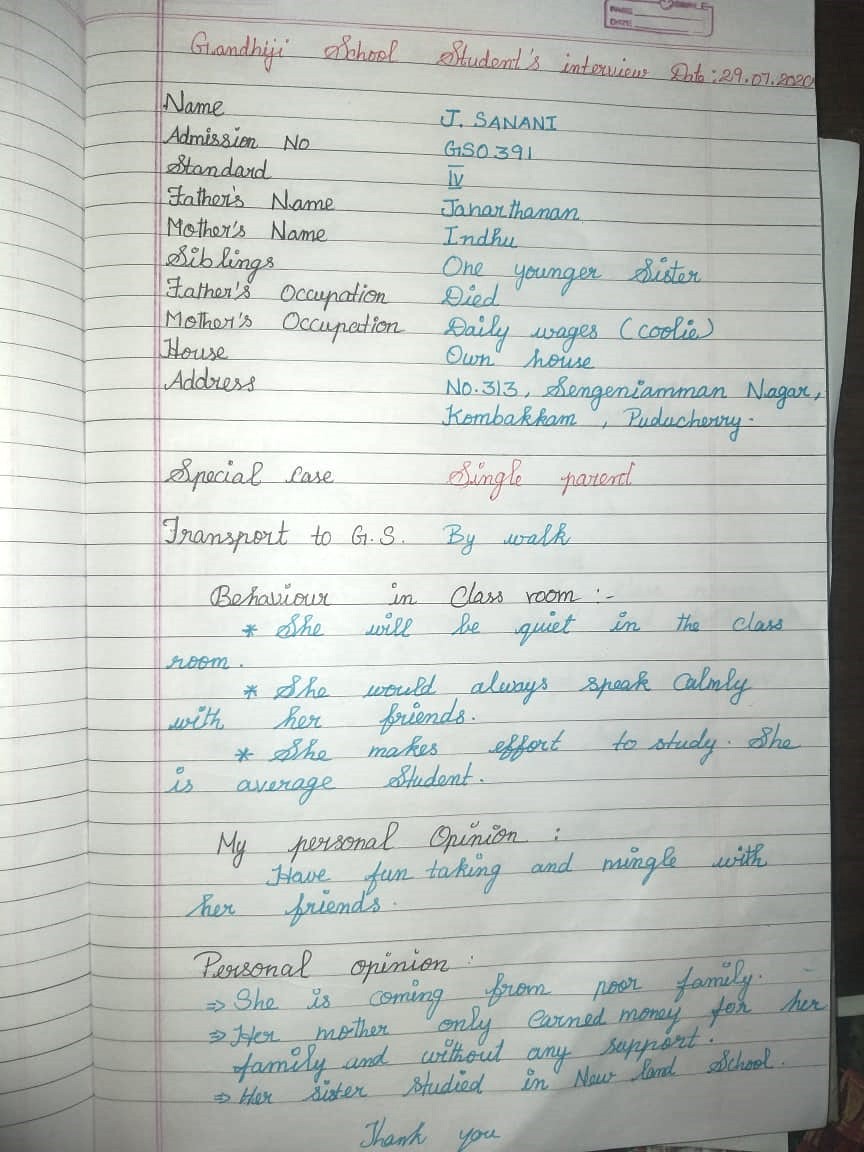 PAGE:
DATE:
Gandhiji School Student's interview Date: 29.07.2020
Name J. SANANI
Admission No GS0391
Standard IV
Father's Name Janarthanan
Mother's Name Indhu
Siblings One younger Sister
Father's Occupation Died
Mother's Occupation Daily wages (coolie)
House Own house
Address No.313, Sengeniamman Nagar,
Kombakkam, Puducherry.
Special Case Single parent
Transport to G.S. By walk
Behaviour in Class room :-
* She will be quiet in the class
room.
* She would always speak Calmly
with her friends.
* She makes effort to study. She
is average Student.
My personal Opinion :
Have fun taking and mingle with
her friends.
Personal opinion :
⇒ She is coming from poor family.
⇒ Her mother only earned money for her
family and without any support.
⇒ Her sister studied in New land School.
Thank you